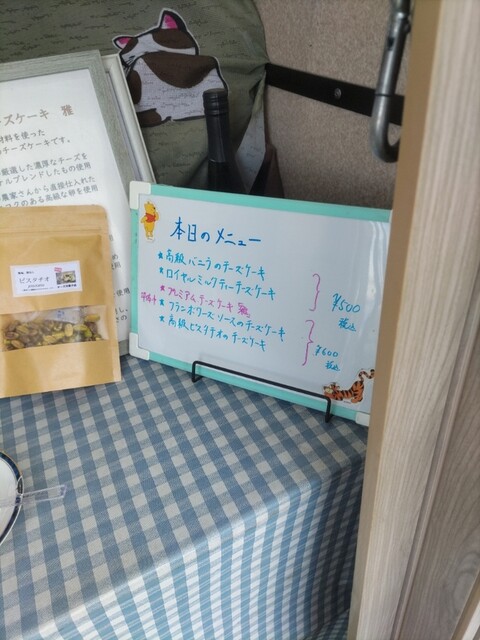 ーズケーキ 雅
材料を使った
のチーズケーキです。
厳選した濃厚なチーズを
ナルブレンドしたもの使用
農家さんから直接仕入れた
コクのある高級な卵を使用
ピスタチオ
本日のメニュー
★高級バニラのチーズケーキ
★ロイヤルミルクティーチーズケーキ
★プレミアムチーズケーキ 雅
★フランボワーズソースのチーズケーキ
★高級ピスタチオのチーズケーキ
¥500
税込
¥600
税込